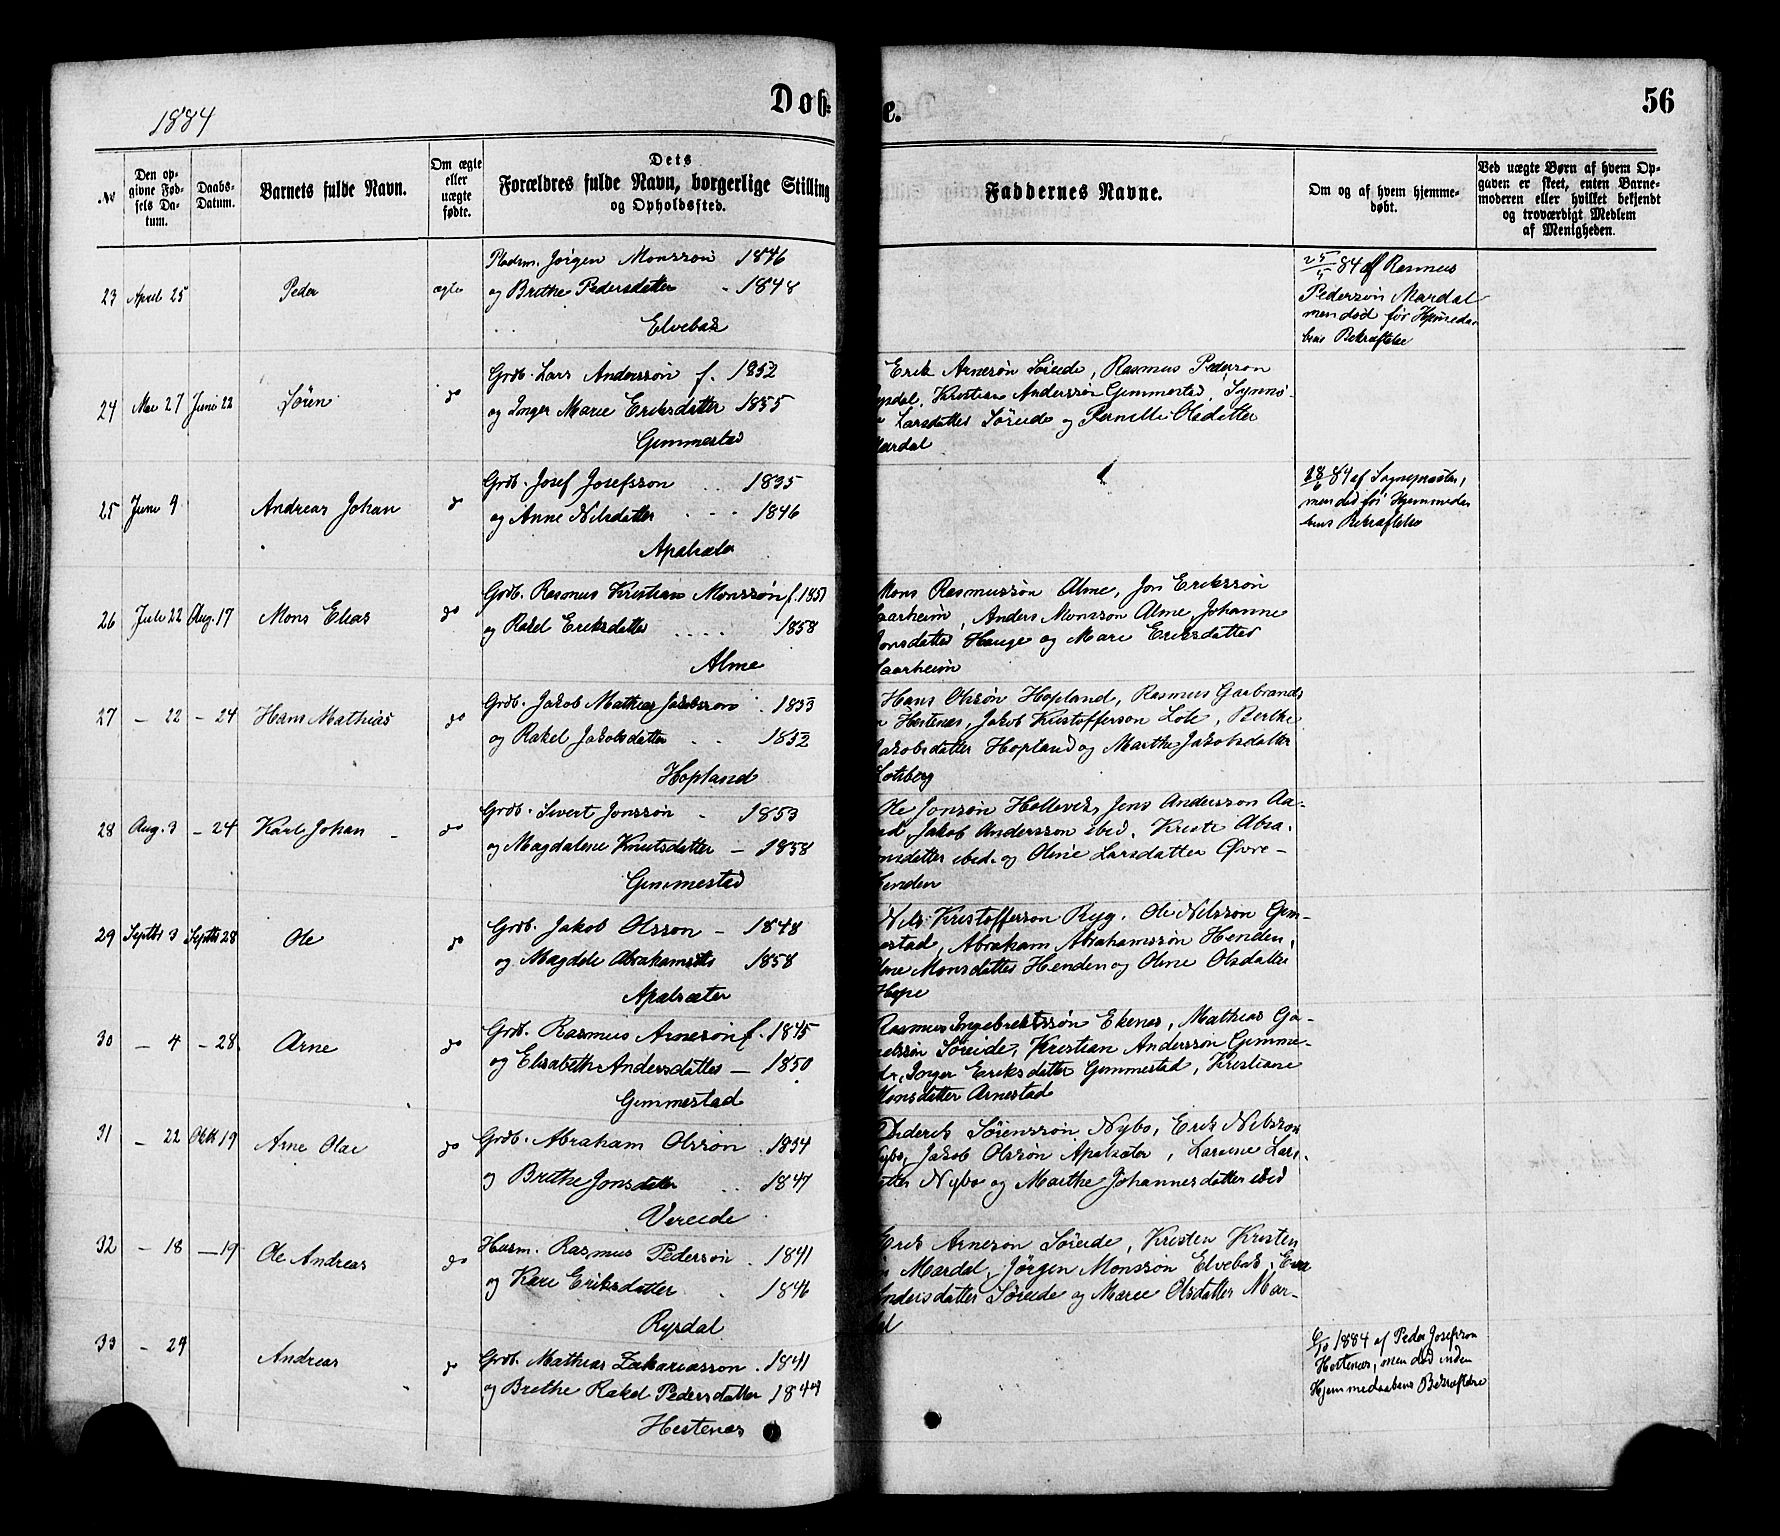 1884
Døb- e.
56
No
Den opgivne Fødsels Datum.
Daabs-Datum.
Barnets fulde Navn.
Om ægte eller uægte fødte.
Dets Forældres fulde Navn, borgerlige Stilling og Opholdssted.
Faddernes Navne.
Om og af hvem hjemmedøbt.
Ved uægte Børn af hvem Opgaven er skeet, enten Barnemoderen eller hvilket bekjendt og troværdigt Medlem af Menigheden.
23 April 25 Peder ægte
Pladsm. Jørgen Monssøn 1846
og Brithe Pedersdatter - 1848
Elvebak
25/5 84 af Rasmus
Pedersøn Mardal
men død før Hjemmedaa-
bens Bekræftelse
24 Mai 27 Juni 22 Søren do
Grdb. Lars Anderssøn f. 1852
og Inger Marie Eriksdatter 1855
Gimmestad
Erik Arnesøn Søreide, Rasmus Pedersøn
rpdal, Kristian Anderssøn Gimmestad, Synnø-
Larsdatter Søreide og Pernille Olsdatter
Mardal
25 Juni 9 Andreas Johan do
Grdb. Josef Josefssøn 1835
og Anne Nilsdatter 1846
Apalsæter
84 af Sognepræsten,
men død før Hjemmedaa-
bens Bekræftelse
26 Juli 22 Aug. 17 Mons Elias do
Grdb. Rasmus Kristian Monssøn f. 1851
og Rakel Eriksdatter 1858
Alme
Mons Rasmussøn Alme, Jon Erikssøn
aarheim, Anders Monssøn Alme, Johanne
onsdatter Hauge og Mari Eriksdatter
aarheim
27 - 22 - 24 Hans Mathias do
Grdb. Jakob Mathias Jakobssøn 1833
og Rakel Jakobsdatter 1852
Hopland
Hans Olssøn Hopland, Rasmus Gaabrands
n Hestenes, Jakob Kristoffersøn Lote, Berthe
Jakobsdatter Hopland og Marthe Jakobsdatter
Lotsberg
28 Aug. 3 - 24 Karl Johan - do
Grdb. Sivert Jonssøn - 1853
og Magdalene Knutsdatter - 1858
Gimmestad
Ole Jonsøn Hollevik, Jens Anderssøn Aa-
ed, Jakob Anderssøn ibid. Kristi Absa-
onsdatter ibid. og Oline Larsdatter Øvre-
Henden
29 Septbr 3 Septbr 28 Ole do
Grdb. Jakob Olsson - 1848
og Magdele Abrahamsdtr 1858
Apalsæter
Nils Kristoffersøn Ryg, Ole Nilssøn Gim-
estad, Abraham Abrahamssøn Henden,
Monsdatter Henden og Oline Olsdatter
Hope
30 - 4 - 28 Arne do
Grdb. Rasmus Arnesøn f. 1845
og Elisabeth Andersdatter - 1850
Gimmestad
Rasmus Ingebretssøn Ekenes, Mathias Ga-
Søreide, Kristian Anderssøn Gimme-
Inger Eriksdatter Gimmestad, Kristiane
Monsdatter Arnestad
31 - 22 Oktbr 19 Arne Olai do
Grdb. Abraham Olssøn 1854
og Brithe Jonsdatter 1847
Vereide
Diderik Sørenssøn Nybø, Erik Nilssøn
Nybø, Jakob Olssøn Apalsæter, Larsine Lars-
atter Nybø og Marthe Johannesdatter ibid
32 - 18 - 19 Ole Andreas do
Husm. Rasmus Pederssøn 1841
og Kari Eriksdatter 1846
Rysdal
Erik Arnesøn Søreide, Kristen Kristen
Mardal, Jørgen Monssøn Elvebak,
Andersdatter Søreide og Marie Olsdatter Mar-
dal
33 - 29 Andreas do
Grdb. Mathias Zakariassøn 1841
og Brithe Rakel Pedersdatter 1844
Hestenes
6/10 1884 af Peder Josefssøn
Hestenes, men død inden
Hjemmedaabens Bekræftelse